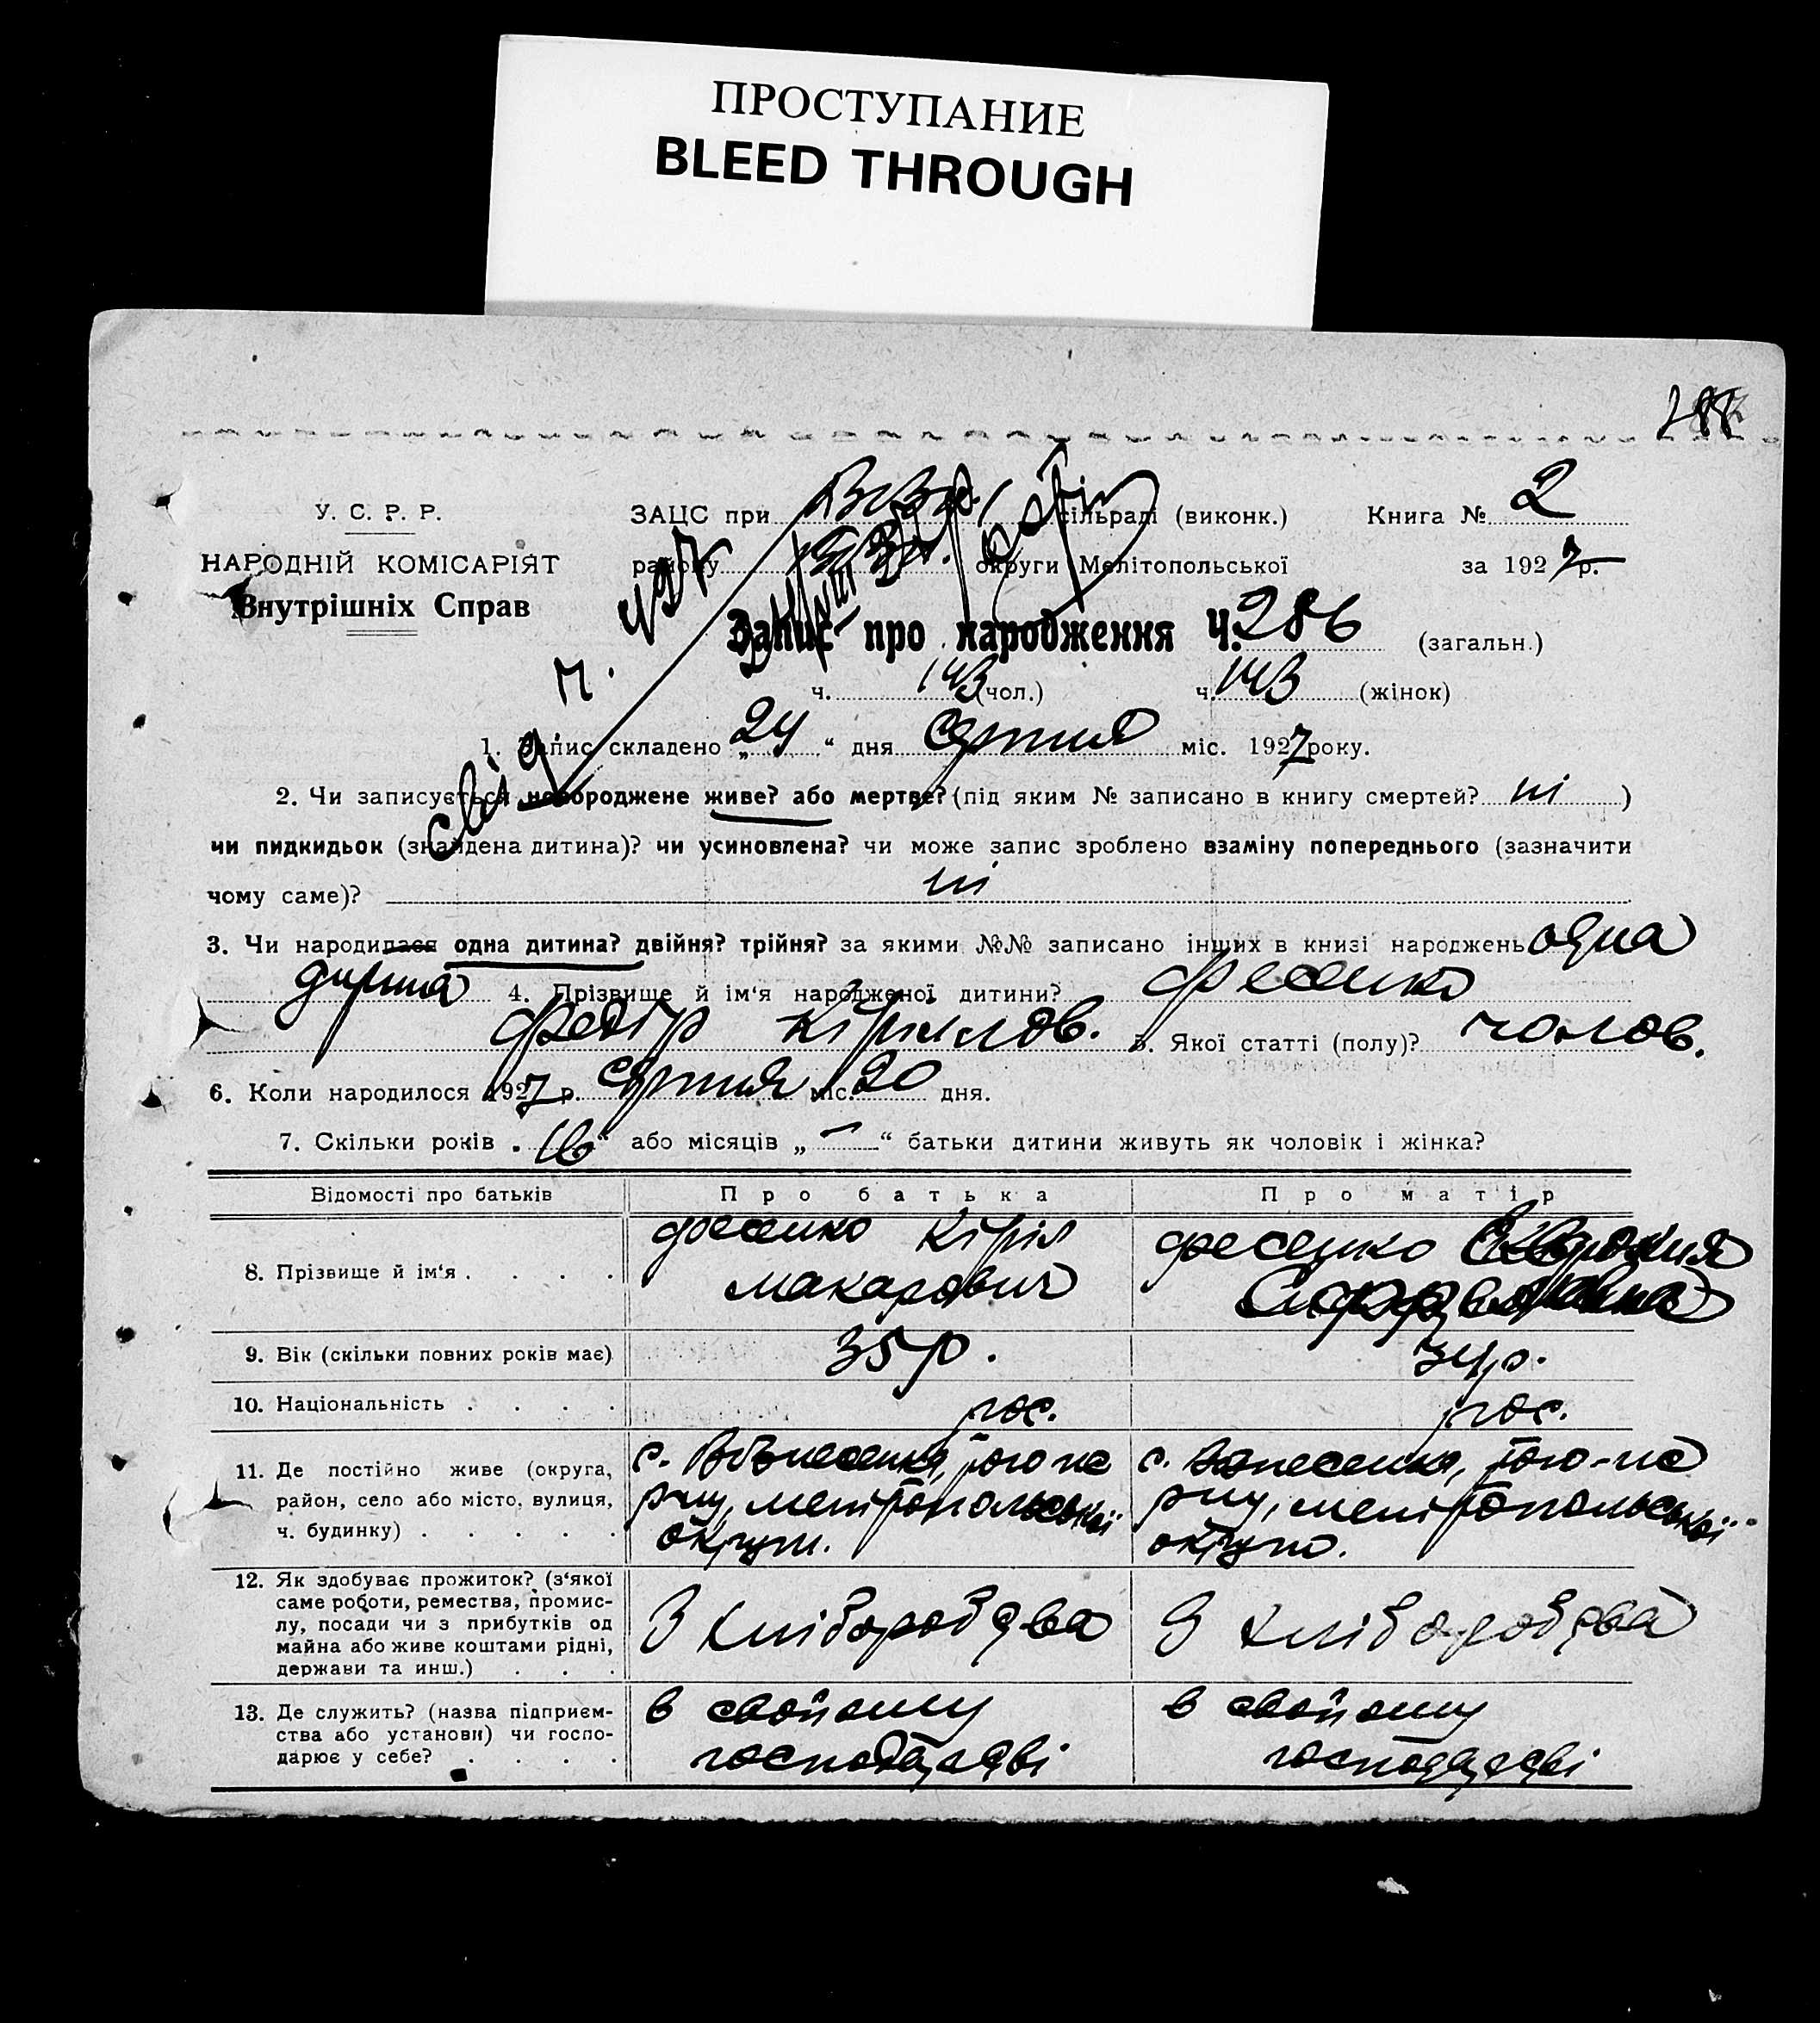 ПРОСТУПАНИЕ
BLEED THROUGH
У. С. Р. Р.
НАРОДНІЙ КОМІСАРІЯТ
Внутрішніх Справ
ЗАЦС при сільраді (виконк.) Книга № 2
району округи Мелітопольської за 1927 р.
Запис про народження Ч. 286 (загальн.)
ч. 143 (чол.) ч. 143 (жінок)
1. Запис складено „24“ дня серпня міс. 1927 року.
2. Чи записується новороджене живе? або мертве? (під яким № записано в книгу смертей? ні)
чи пидкидьок (знайдена дитина)? чи усиновлена? чи може запис зроблено взаміну попереднього (зазначити
чому саме)? ні
3. Чи народилася одна дитина? двійня? трійня? за якими №№ записано інших в книзі народжень одна
дитина 4. Прізвище й ім‘я народженої дитини? Фесенко
Федір Кірилов. 5. Якої статті (полу)? чолов.
6. Коли народилося 1927 р. серпня міс. 20 дня.
7. Скільки років „16“ або місяців „—“ батьки дитини живуть як чоловік і жінка?
Відомості про батьків Про батька Про матір
8. Прізвище й ім‘я . . . . Фесенко Кіріл Макарович Фесенко
9. Вік (скільки повних років має) 35 р. 34 р.
10. Національність . . . . рос. рос.
11. Де постійно живе (округа,
район, село або місто, вулиця,
ч. будинку) . . . . .
с. Вознесенка, того-же
р-ну, Мелітопольської
округи.
с. Вознесенка, того-же
р-ну, Мелітопольської
округи.
12. Як здобуває прожиток? (з‘якої
саме роботи, ремества, промис-
лу, посади чи з прибутків од
майна або живе коштами рідні,
держави та инш.) . . .
З хліборобства
З хліборобства
13. Де служить? (назва підприєм-
ства або установи) чи госпо-
дарює у себе? . . . .
в свойому
господарстві
в свойому
господарстві